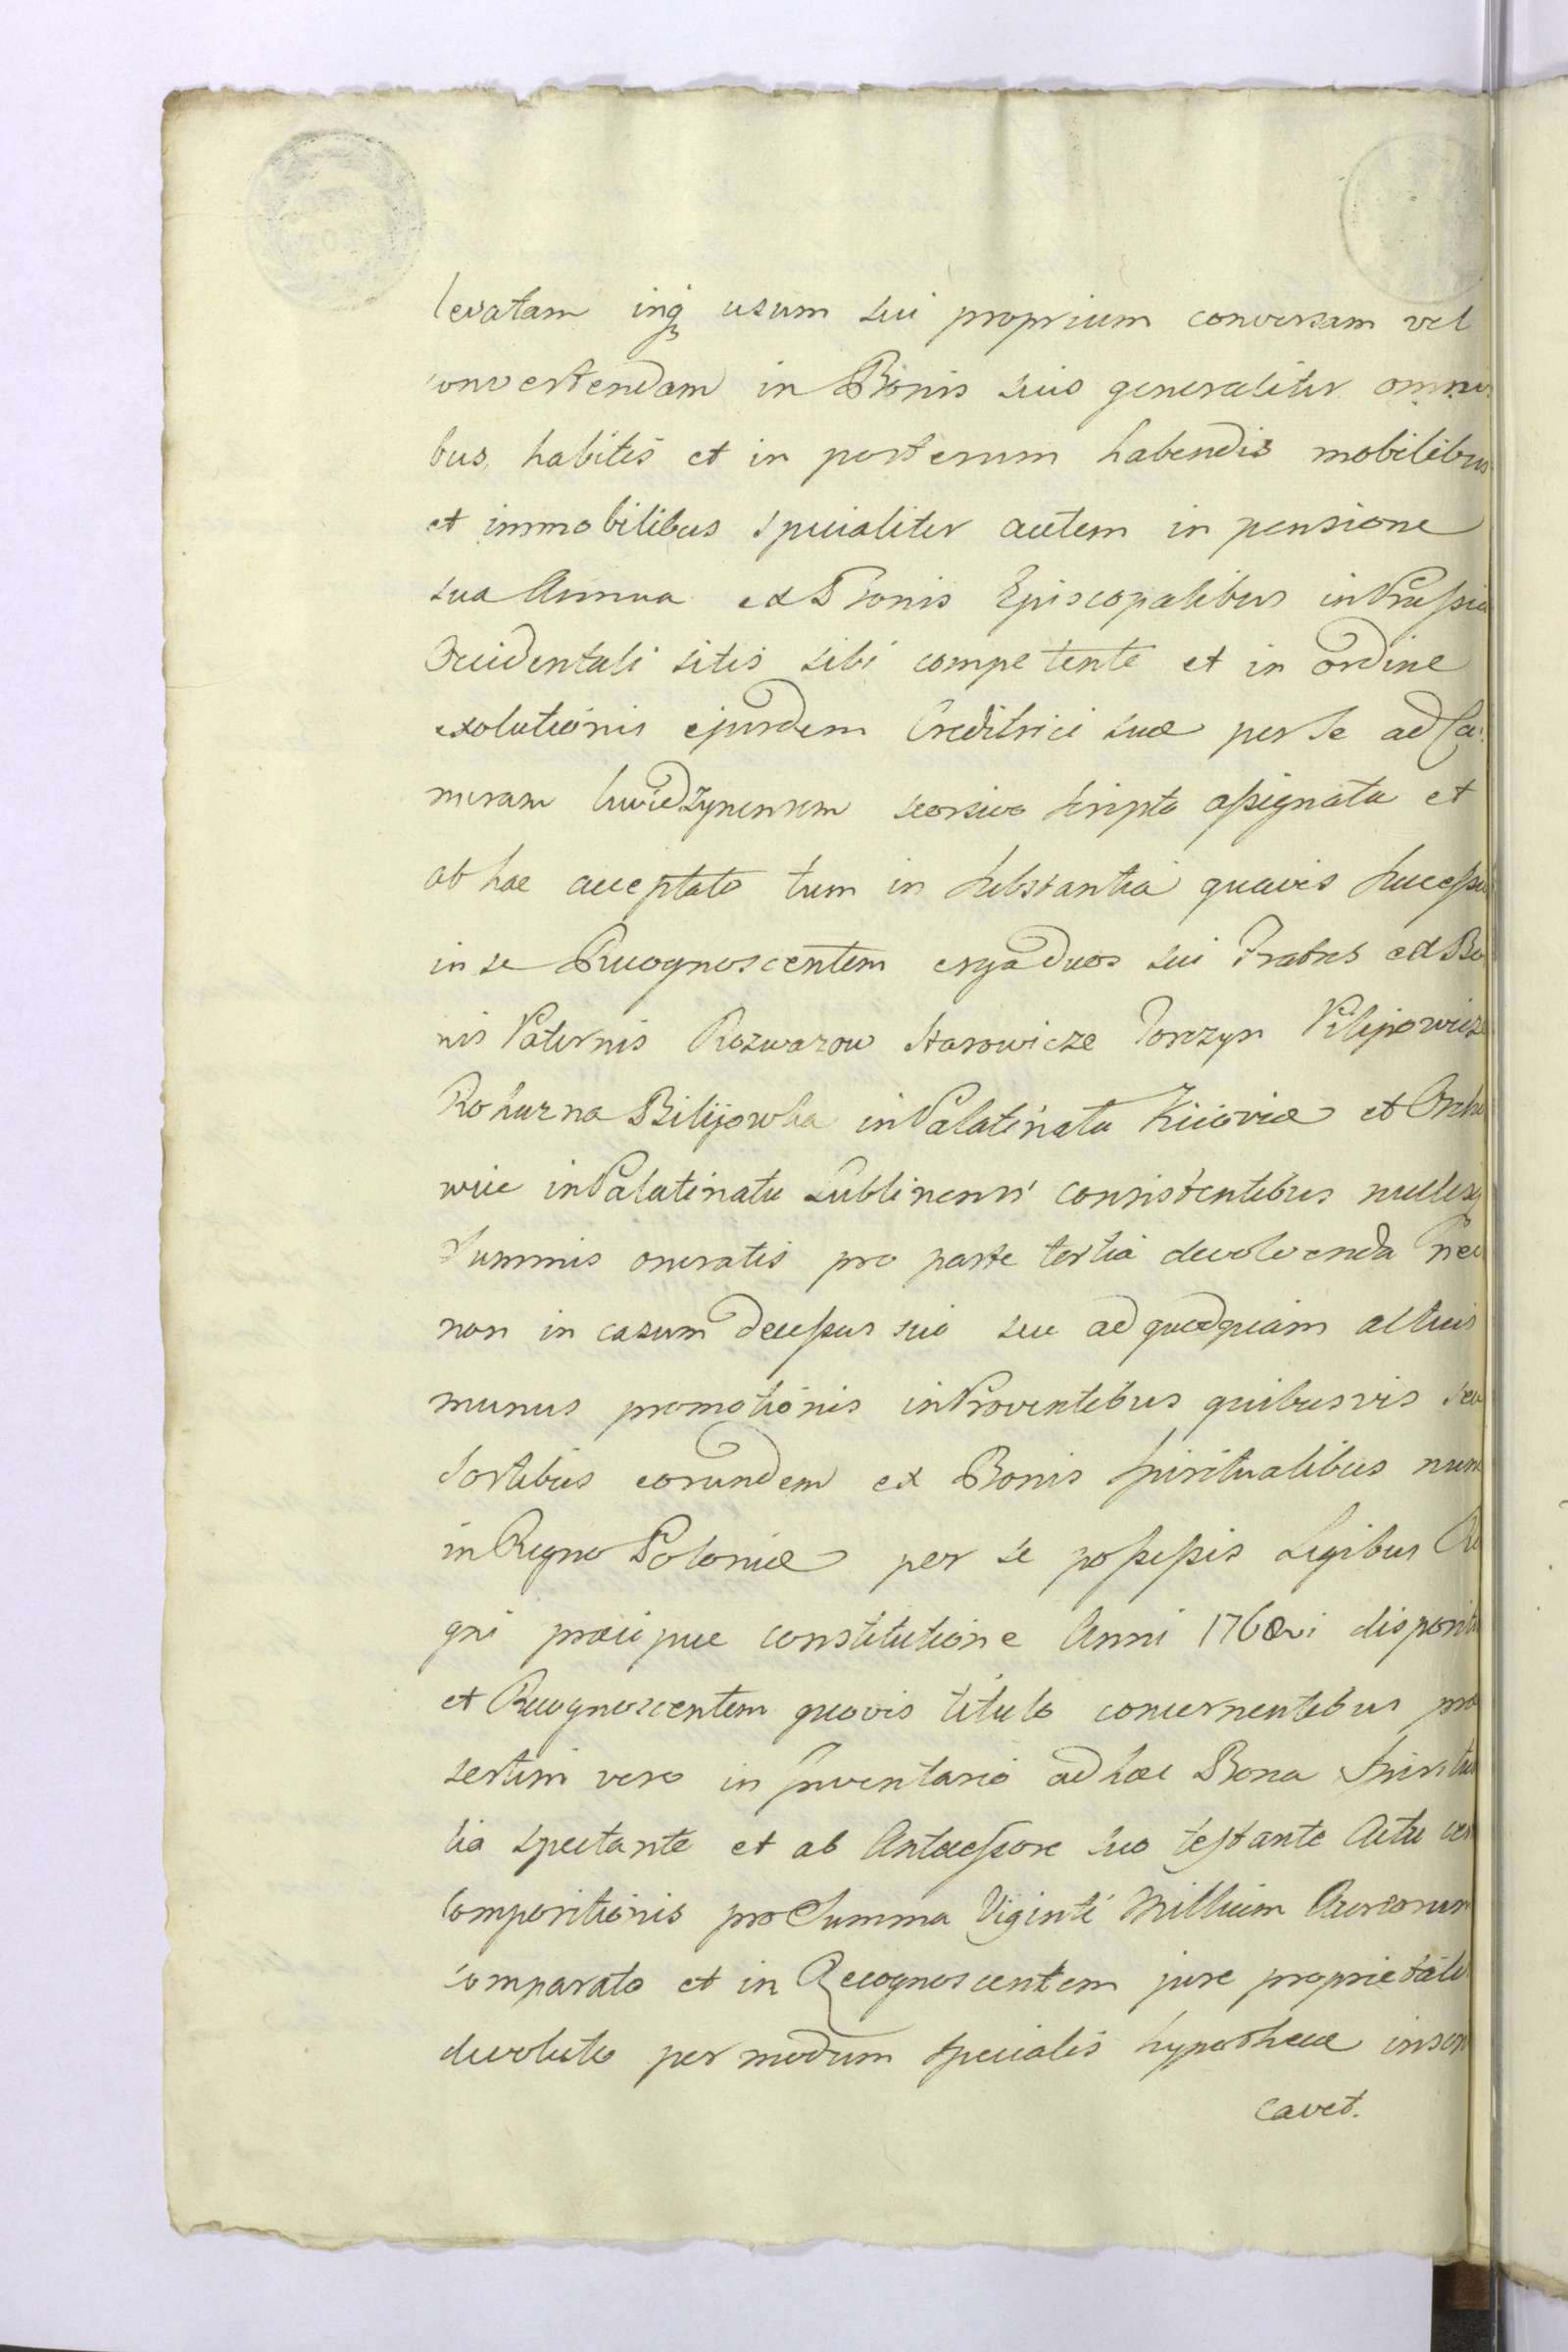 levatam inq̨ usum sui proprium conversam vel
convertendam in Bonis suis generaliter omni
bus habitis et in posterum habendis mobilibus
et immobilibus specialiter autem in pensione
sua Annua ex Bonis Episcopalibus in Prussia
Occidentali sitis sibi competente et in ordine
exolutionis ejusdem Creditrici suæ per se ad Ca:
meram Kwiedzynensem seorsivo scripto assignata et
ab hac acceptata tum in substantia quavis successu
in se Recognoscentem erga duos sui Fratres ex Bo
nis Paternis Rozwazow Starowicze Torczyn Filipowicze
Rohuzna Bilijowka in Palatinatu Kijoviæ et Orcho
wiec in Palatinatu Lublinensi consistentibus nullisq
Summis oneratis pro parte tertia devolvenda nec
non in casum decessus sui seu ad quodpiam altius
munus promotionis in Proventibus quibusvis seu
Sortibus eorundem ex Bonis Spiritualibus nunc
in Regno Poloniæ per se possessis Legibus Re
gni præcipue constitutione Anni 1768vi disposita
et Recognoscentem quovis titulo concernentibus præ
sertim vero in Inventario ad hæc Bona Spiritua
lia spectante et ab Antecessore suo testante Actu
compositionis pro Summa Viginti Millium Aureorum
comparato et in Recognoscentem jure proprietatis
devoluto per modum specialis hypothecæ inscri
cavet.